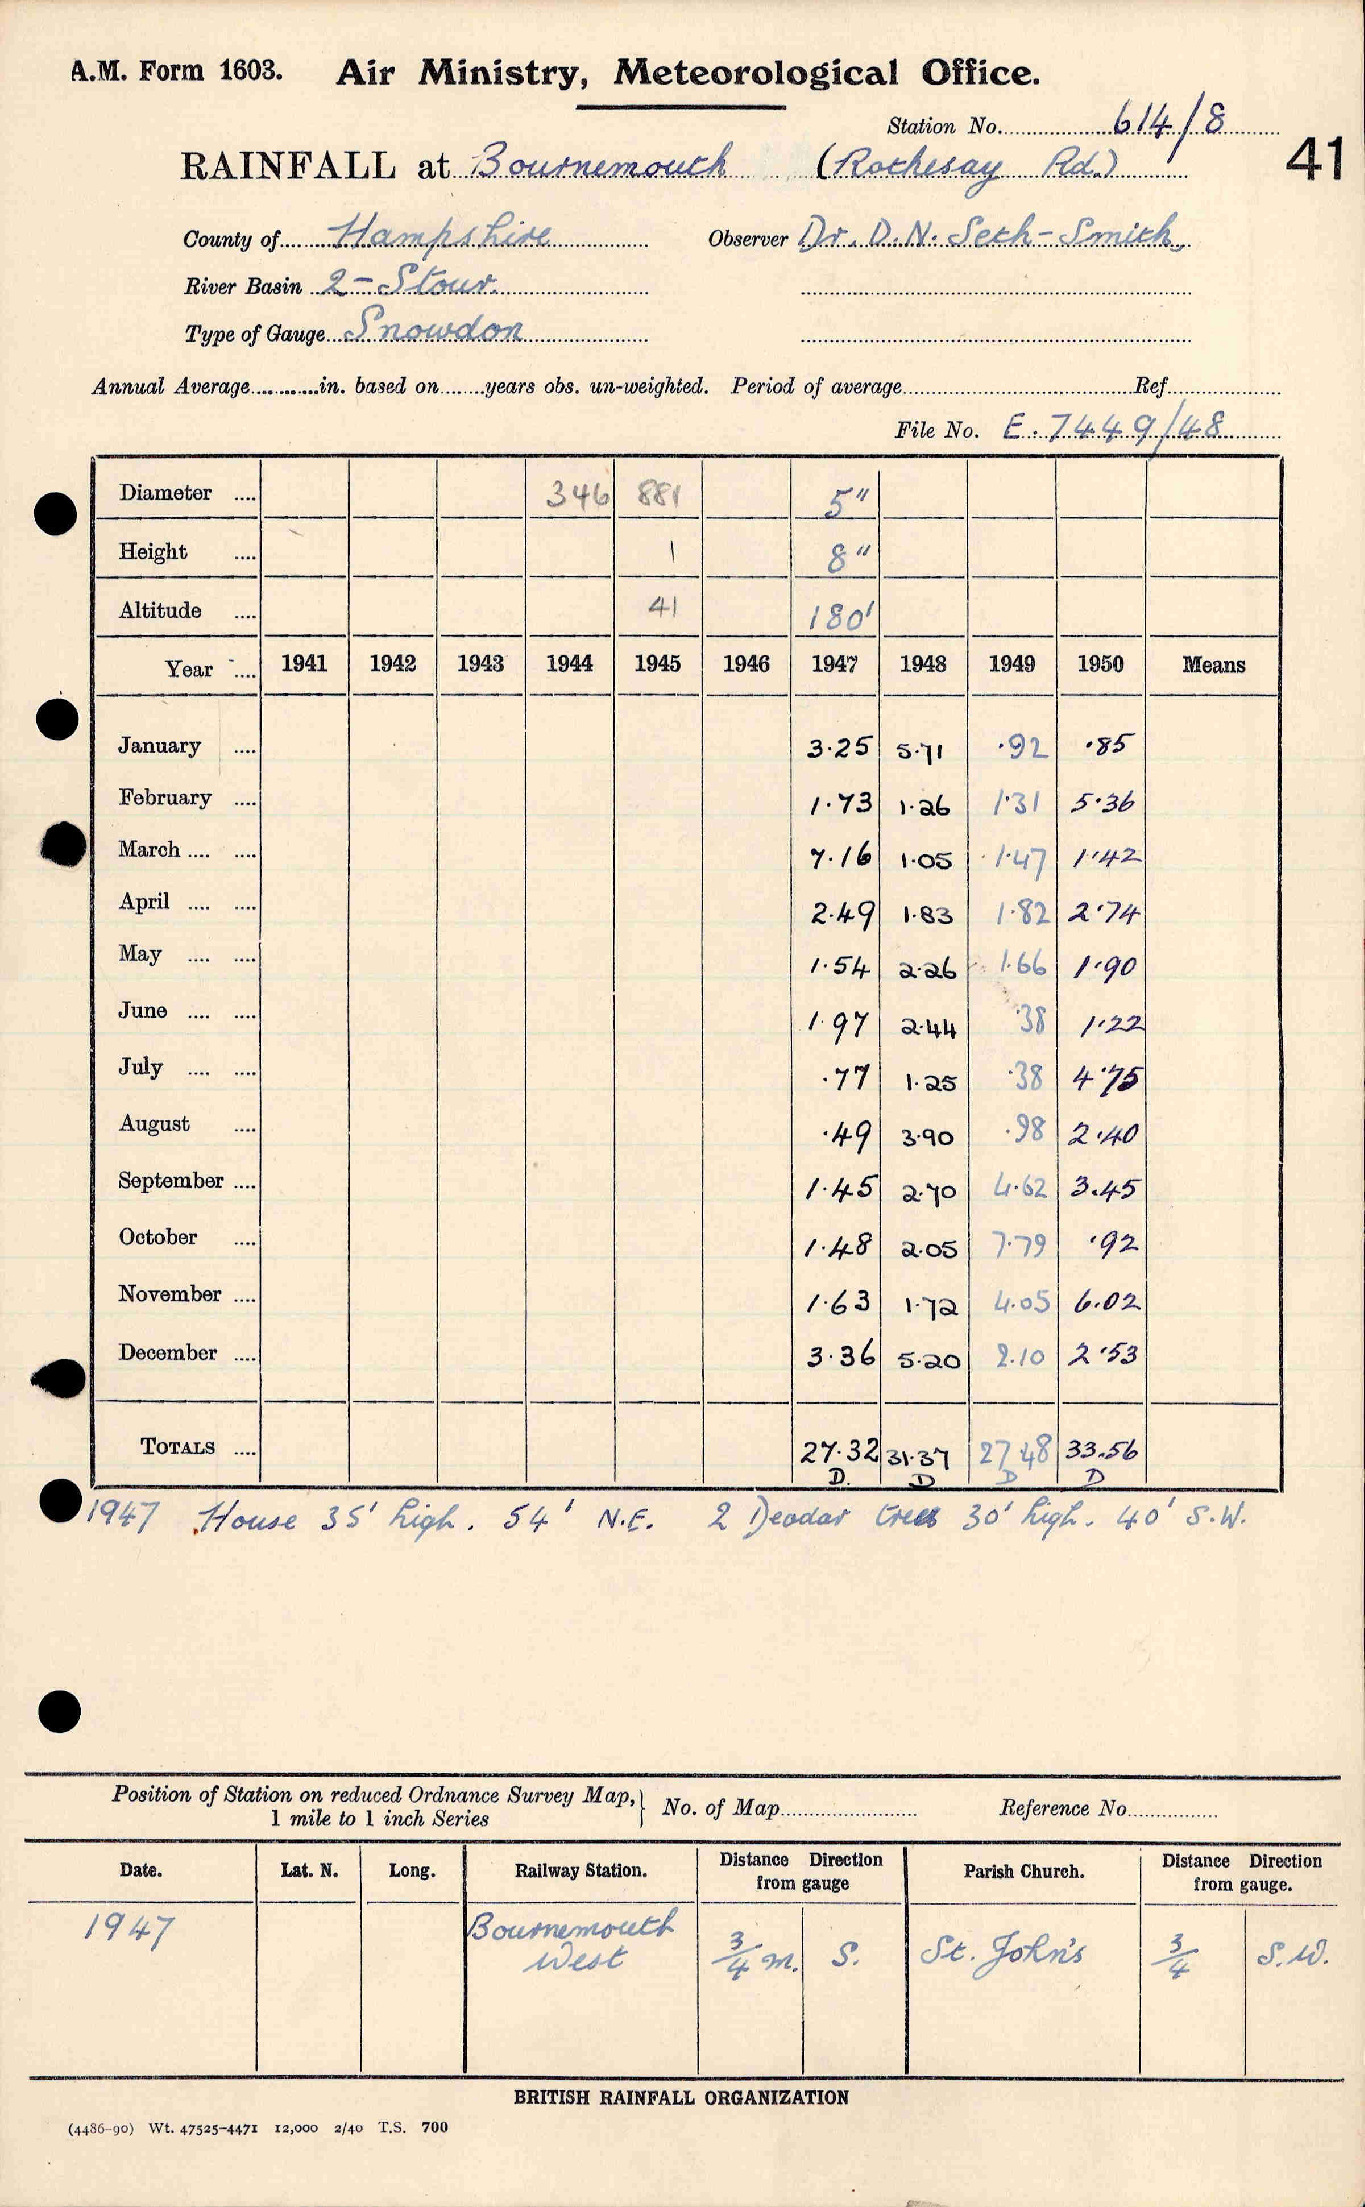 A.M. Form 1603. Air Ministry, Meteorological Office.
Station No. 614/8
RAINFALL at Bournemouth (Rothesay Rd.) 41
County of Hampshire Observer Dr. D.N. Seth-Smith
River Basin 2-Stour.
Type of Gauge Snowdon
Annual Average in. based on years obs. un-weighted. Period of average Ref
File No. E. 7449/48
Diameter .... 346 881 5"
Height .... 1 8"
Altitude .... 41 180'
Year .... 1941 1942 1943 1944 1945 1946 1947 1948 1949 1950 Means
January .... 3.25 5.71 .92 .85
February .... 1.73 1.26 1.31 5.36
March .... .... 7.16 1.05 1.47 1.42
April .... .... 2.49 1.83 1.82 2.74
May .... .... 1.54 2.26 1.66 1.90
June .... .... 1.97 2.44 .38 1.22
July .... .... .77 1.25 .38 4.75
August .... .49 3.90 .98 2.40
September .... 1.45 2.70 4.62 3.45
October .... 1.48 2.05 7.79 .92
November .... 1.63 1.72 4.05 6.02
December .... 3.36 5.20 2.10 2.53
TOTALS .... 27.32 31.37 27.48 33.56
D. D D D
1947 House 35' high. 54' N.E. 2 Deodar trees 30' high. 40' S.W.
Position of Station on reduced Ordnance Survey Map, } No. of Map Reference No
1 mile to 1 inch Series
Date. Lat. N. Long. Railway Station. Distance Direction from gauge Parish Church. Distance Direction from gauge.
1947 Bournemouth West 3/4 m. S. St. John's 3/4 S.W.
BRITISH RAINFALL ORGANIZATION
(4486-90) Wt. 47525-4471 12,000 2/40 T.S. 700